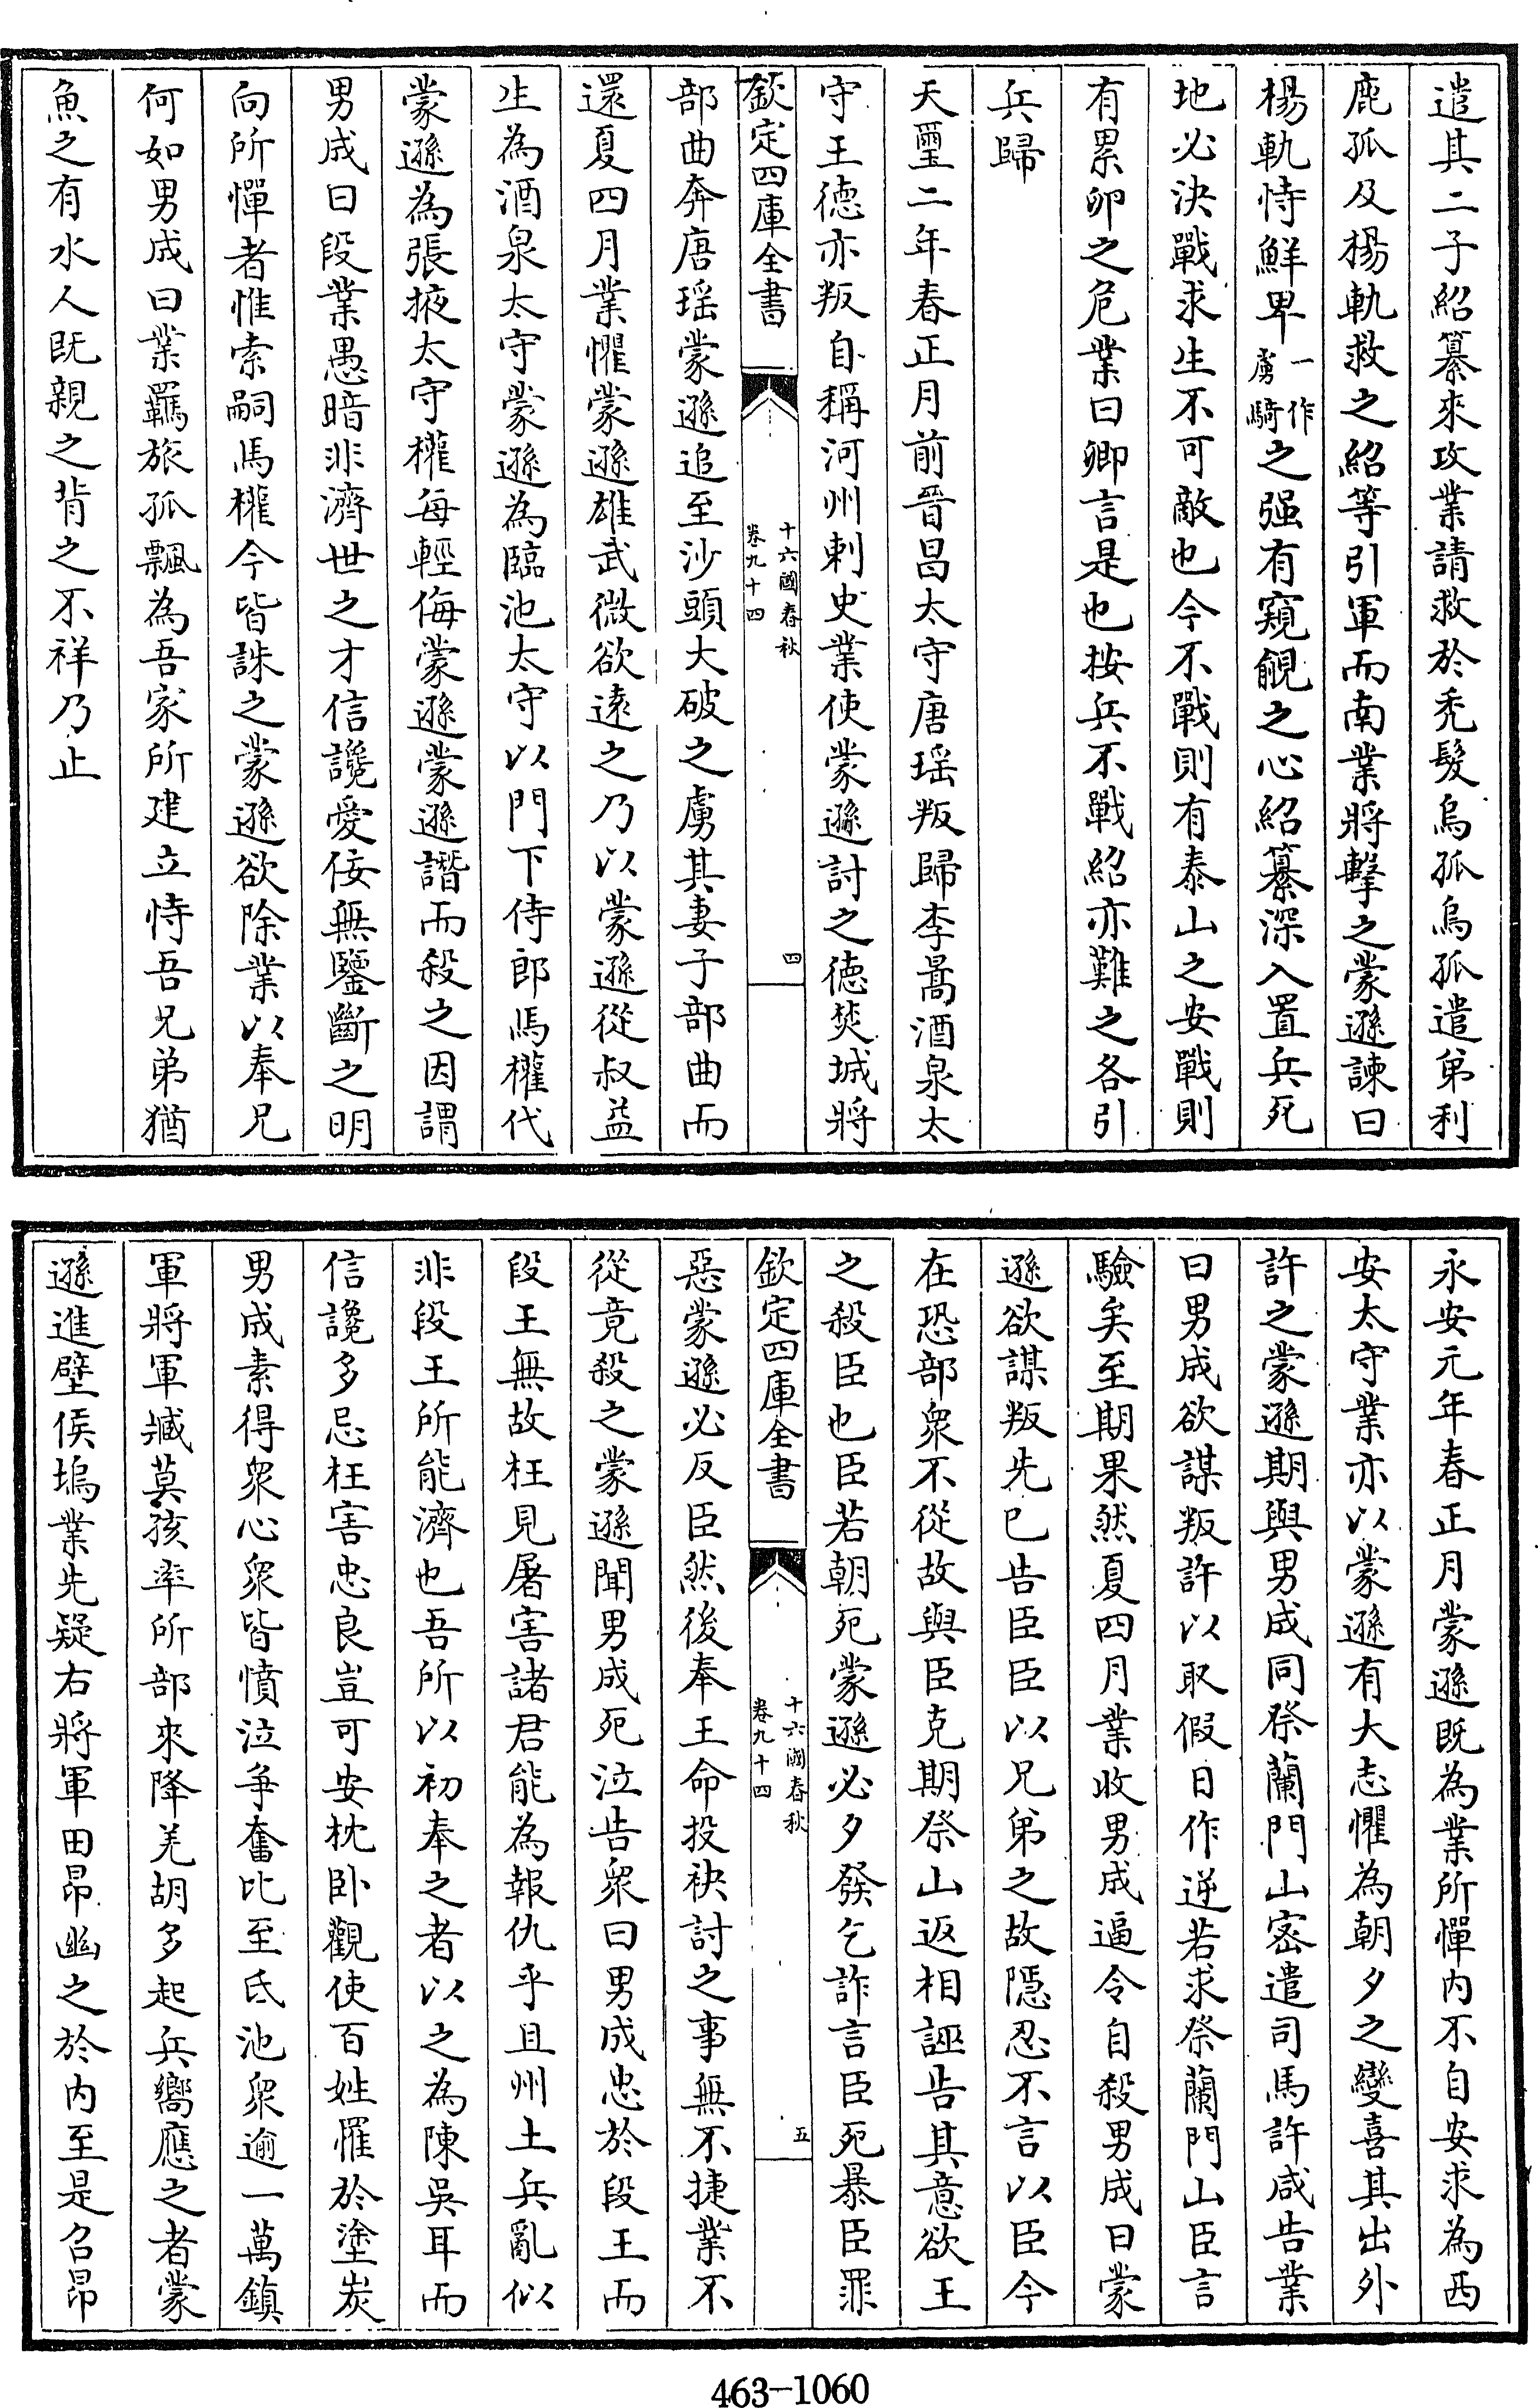 遣其二子紹纂來攻業請救於禿髮烏孤烏孤遣弟利
鹿孤及楊軌救之紹等引軍而南業將擊之蒙遜諫曰
楊軌恃鮮卑一作虜騎之强有窺覦之心紹纂深入置兵死
地必決戰求生不可敵也今不戰則有泰山之安戰則
有累卵之危業曰卿言是也按兵不戰紹亦難之各引
兵歸
天璽二年春正月前晉昌太守唐瑶叛歸李暠酒泉太
守王德亦叛自稱河州刺史業使蒙遜討之德焚城將
欽定四庫全書
十六國春秋
卷九十四
四
部曲奔唐瑶蒙遜追至沙頭大破之虜其妻子部曲而
還夏四月業懼蒙遜雄武微欲遠之乃以蒙遜從叔益
生為酒泉太守蒙遜為臨池太守以門下侍郎馬權代
蒙遜為張掖太守權每輕侮蒙遜蒙遜譖而殺之因謂
男成曰段業愚暗非濟世之才信讒愛佞無鑒斷之明
向所憚者惟索嗣馬權今皆誅之蒙遜欲除業以奉兄
何如男成曰業羈旅孤飄為吾家所建立恃吾兄弟猶
魚之有水人既親之背之不祥乃止
永安元年春正月蒙遜既為業所憚内不自安求為西
安太守業亦以蒙遜有大志懼為朝夕之變喜其出外
許之蒙遜期與男成同祭蘭門山密遣司馬許咸告業
曰男成欲謀叛許以取假日作逆若求祭蘭門山臣言
驗矣至期果然夏四月業收男成逼令自殺男成曰蒙
遜欲謀叛先已告臣臣以兄弟之故隱忍不言以臣今
在恐部衆不從故與臣克期祭山返相誣告其意欲王
之殺臣也臣若朝死蒙遜必夕發乞詐言臣死暴臣罪
欽定四庫全書
十六國春秋
卷九十四
五
惡蒙遜必反臣然後奉王命投袂討之事無不捷業不
從竟殺之蒙遜聞男成死泣告衆曰男成忠於段王而
段王無故枉見屠害諸君能為報仇乎且州土兵亂似
非段王所能濟也吾所以初奉之者以之為陳吳耳而
信讒多忌枉害忠良豈可安枕卧觀使百姓罹於塗炭
男成素得衆心衆皆憤泣爭奮比至氐池衆逾一萬鎮
軍將軍臧莫孩率所部來降羌胡多起兵嚮應之者蒙
遜進壁侯塢業先疑右將軍田昂幽之於内至是召昂
463-1060